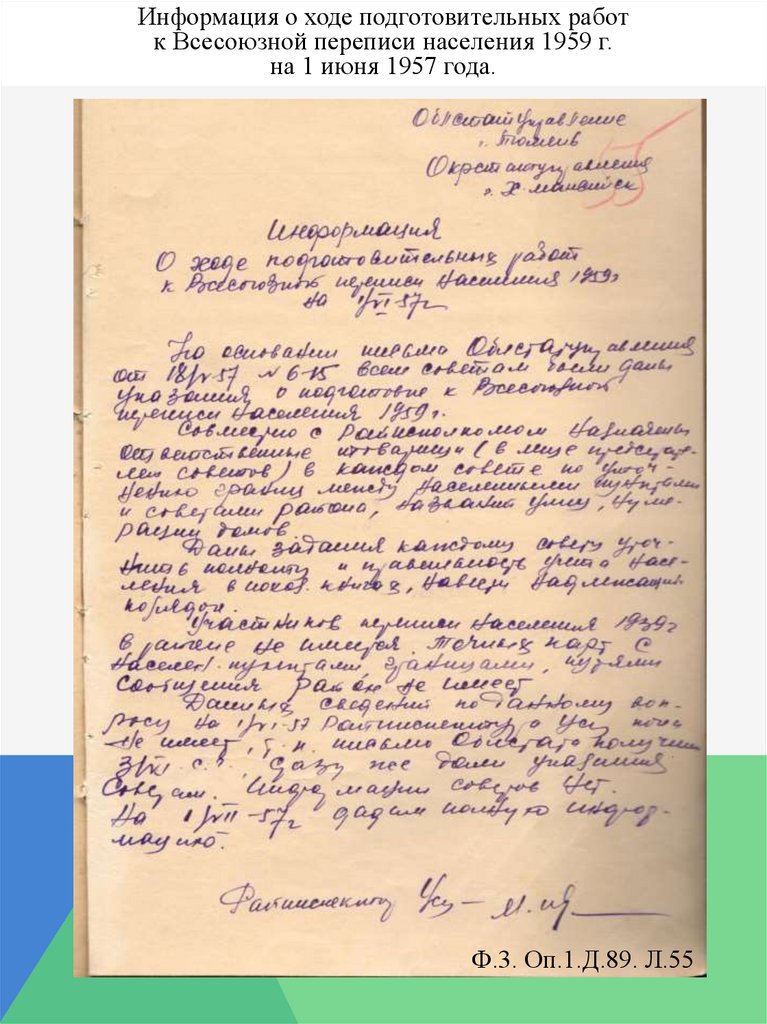 Информация о ходе подготовительных работ
к Всесоюзной переписи населения 1959 г.
на 1 июня 1957 года.
Облстатуправление
г. Тюмень
55
Окрстатуправления
г. Х. Мансийск
Информация
О ходе подготовительных работ
к Всесоюзной переписи населения 1959г
на 1/VI-57г
На основании письма Облстатуправления
от 18/V-57 № 6-15 всем советам были даны
указания о подготовке к Всесоюзной
переписи населения 1959г.
Совместно с Райисполкомом назначены
ответственные товарищи (в лице председате-
лей советов) в каждом совете по уточ-
нению границ между населенными пунктами
и советами района, названий улиц, нуме-
рации домов.
Даны задания каждому совету уточ-
нить полноту и правильность учета насе-
ления в похоз. книгах, навести надлежащий
порядок.
Участников переписи населения 1939г
в районе не имеется. Точных карт с
населен. пунктами, границами, путями
сообщения район не имеет
Данных сведений по данному воп-
росу на 1/VI-57 Райинспектура ЦСУ пока
не имеет, т.к. письмо Облстата получили
3/VI с.г., сразу же дали указания
Советам. Информации советов нет.
На 1/VII-57г дадим полную инфор-
мацию.
Райинспектор ЦСУ -
Ф.3. Оп.1.Д.89. Л.55